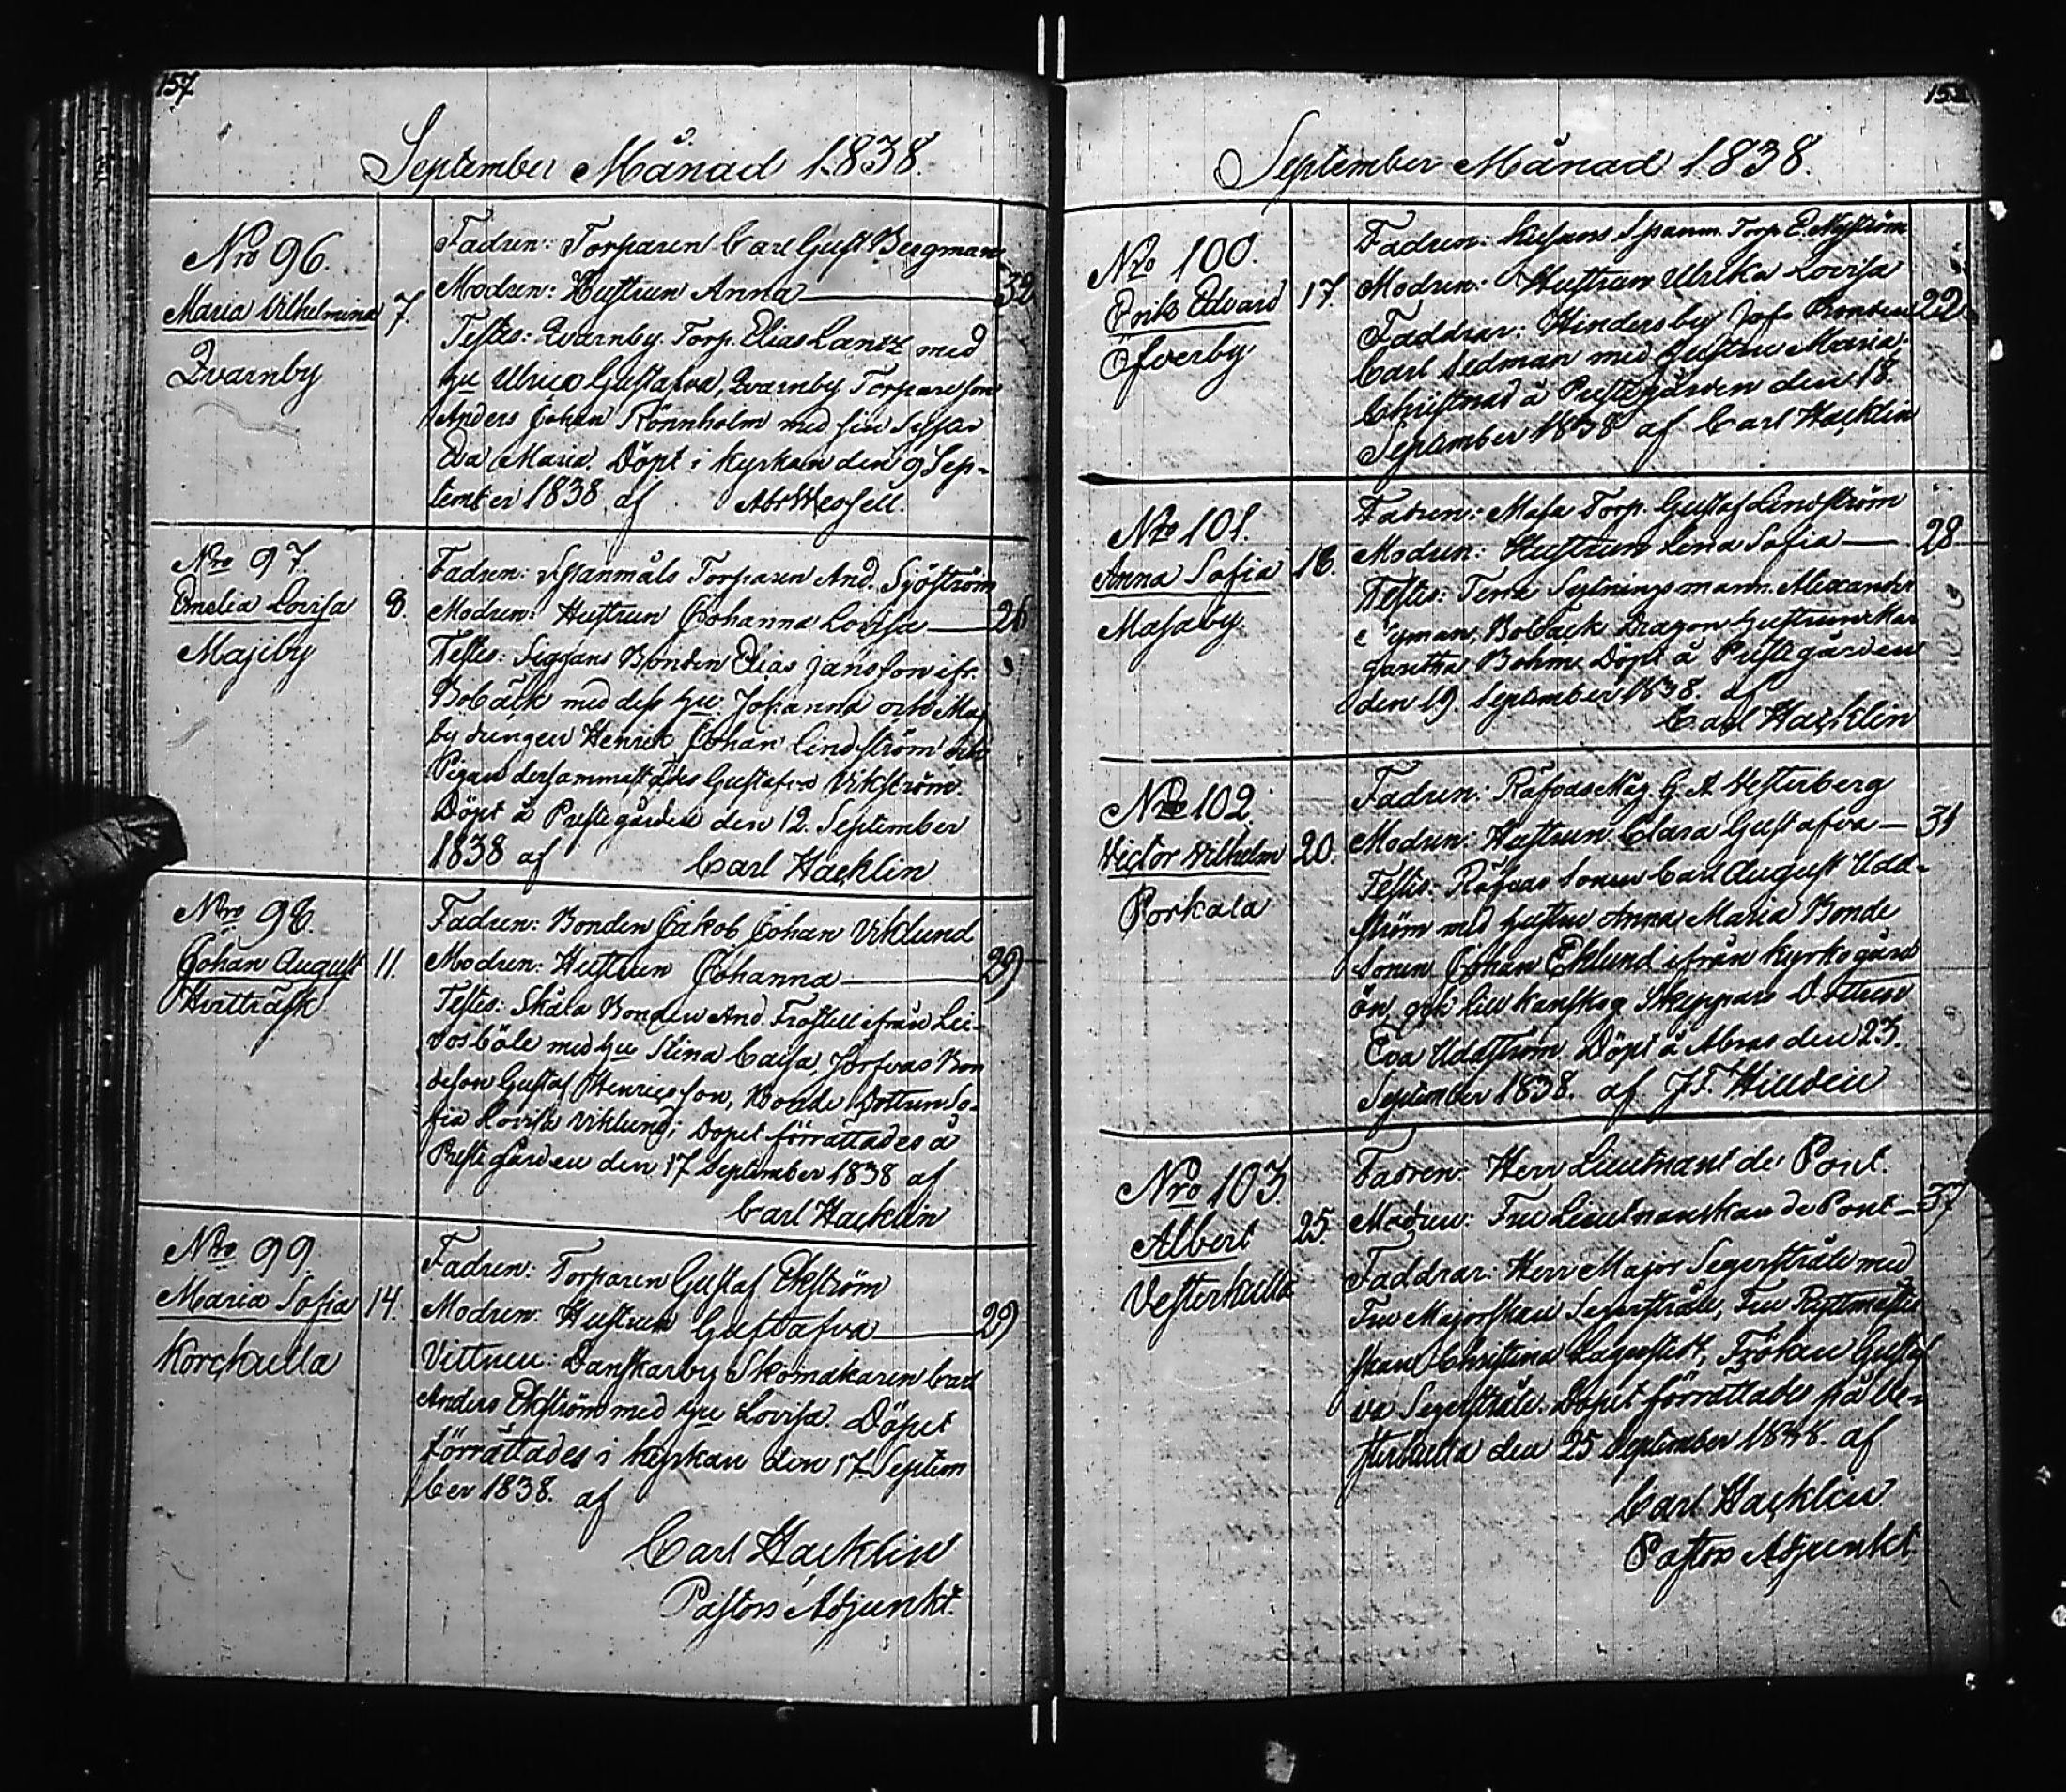 157
September Månad 1838.
Nro 96.
Maria Vilhelmina 7.
Qvarnby
Fadren: Torparen Carl Gust. Bergman
Modren: Hustrun Anna 32
Testes: Qvarnby Torp. Elias Lantz med
hu Ulrica Gustafva, Qvarnby Torpareson
Anders Johan Rönnholm med sin Syster
Eva Maria. Döpt i kyrkan den 9 Sep-
tember 1838 af Abr Wessell.
Nro 97.
Emelia Lovisa 8.
Majiby
Fadren: Spanmåls Torparen And. Sjöström
Modren: Hustrun Johanna Lovisa 26
Testes: Siggans Bonden Elias Jansson ifr.
Bobäck med dess hu Johanna och Maj
by drengen Henrik Johan Lindström och
Pigan dersammastädes Gustafva Vikström.
Döpt å Prestegården den 12. September
1838 af Carl Hacklin
Nro 98.
Johan August 11.
Hvitträsk
Fadren: Bonden Jakob Johan Viklund
Modren: Hustrun Johanna 29
Testes: Skåla Bonden And. Frostell ifrån Lei-
vosböle med hu Stina Caisa, Jorfvas Bon
deson Gustaf Henricsson, Bonde Dottren So-
fia Lovisa Viklund; Dopet förrättades å
Preste gården den 17 September 1838 af
Carl Hacklin
Nro 99.
Maria Sofia 14.
Korckulla
Fadren: Torparen Gustaf Ekström
Modren: Hustrun Gustafva 29
Vittnen: Danskarby Skomakaren Carl
Anders Ekström med hu Lovisa. Döpet
förrättades i kyrkan den 17 Septem
ber 1838. af
Carl Hacklin
Pastors Adjunkt.
September Månad 1838.
Nro 100.
Erik Edvard 17.
Öfverby
Fadren: Spanm. Torp. E. Nyström
Modren: Hustrun Ulrika Lovisa
Faddrar: Hindersby Bonden 22
Carl Sedman med hustru Maria.
Christnad å Prestegården den 18.
September 1838 af Carl Hacklin
Nro 101.
Anna Sofia 16.
Masaby.
Fadren: Masa Torp. Gustaf Lindström
Modren: Hustrun Lena Sofia 28
Testes: Sytningsmann. Alexander
Bobäck Dragon hustrun Mar
garetha Böhm. Döpt å Prestegården
den 19. September 1838. af
Carl Hacklin
Nro 102.
Victor Wilhelm 20.
Porkala
Fadren: Räfvas Måg G. A Vesterberg
Modren: Hustrun Clara Gustafva 31
Testes: Räfvas Sonen Carl August Udd-
ström med hustru Anna Maria Bonde
Sonen Johan Eklund ifrån Kyrkogård
ön, och Skeppars Dottren
Eva Uddström. Döpt å Abras den 23.
September 1838. af J.F. Hilldén
Nro 103.
Albert 25.
Vesterkulla
Fadren: Herr Lieutnant de Pont.
Modren: Fru Lieutnanskan de Pont 37
Faddrar: Herr Major Segerstråle med
Fru Majorskan Segerstråle, Fru Ryttmäster
skan Christina Lagerstedt, Fröken Gustaf
va Segerstråle. Dopet förrättades på Ve-
sterkulla den 25 September 1838. af
Carl Hacklin
Pastors Adjunkt.